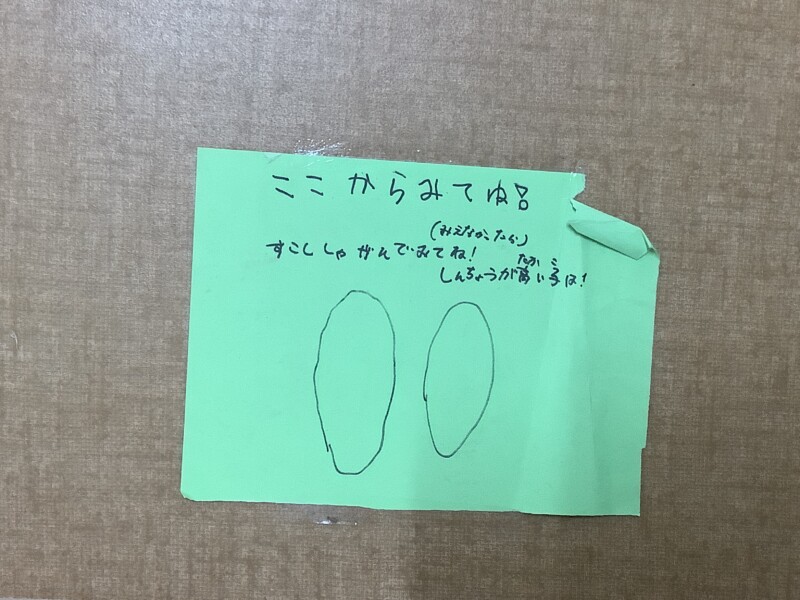 ここからみてね!!
(みえなかったら)
すこししゃがんでみてね!
しんちょうが高い子は!
たか こ